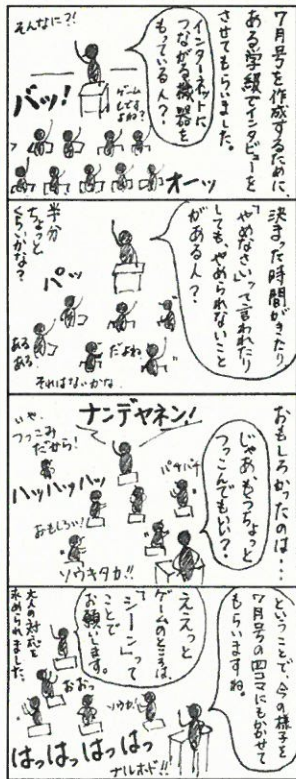 7月号を作成するために、
ある学級でインタビューを
させてもらいました。
インターネットに
つながる機器を
もっている人?
そんなに?!
ゲーム
もですよね?
バッ!
オーッ
決まった時間がきたり、
「やめなさい」って言われたり
しても、やめられないこと
がある人?
パッ
半分
ちょっと
くらいかな?
だよね
あるある
それはないかな
おもしろかったのは・・・
じゃあもうちょっと
つっこんでもいい?
ナンデヤネン!
いや、
つっこみ
だから!
パチパチ
ハッハッハッ
おもしろい!
ソウキタカ!!
ということで、今の様子を
7月号の四コマにもかかせて
もらいますね。
ええっと
ゲームのところは、
「シーン」って
ことで
お願います。
大人の対応を
求められました。
おおっ
ソウカ!
はっはっはっはっ
ナルホド!!